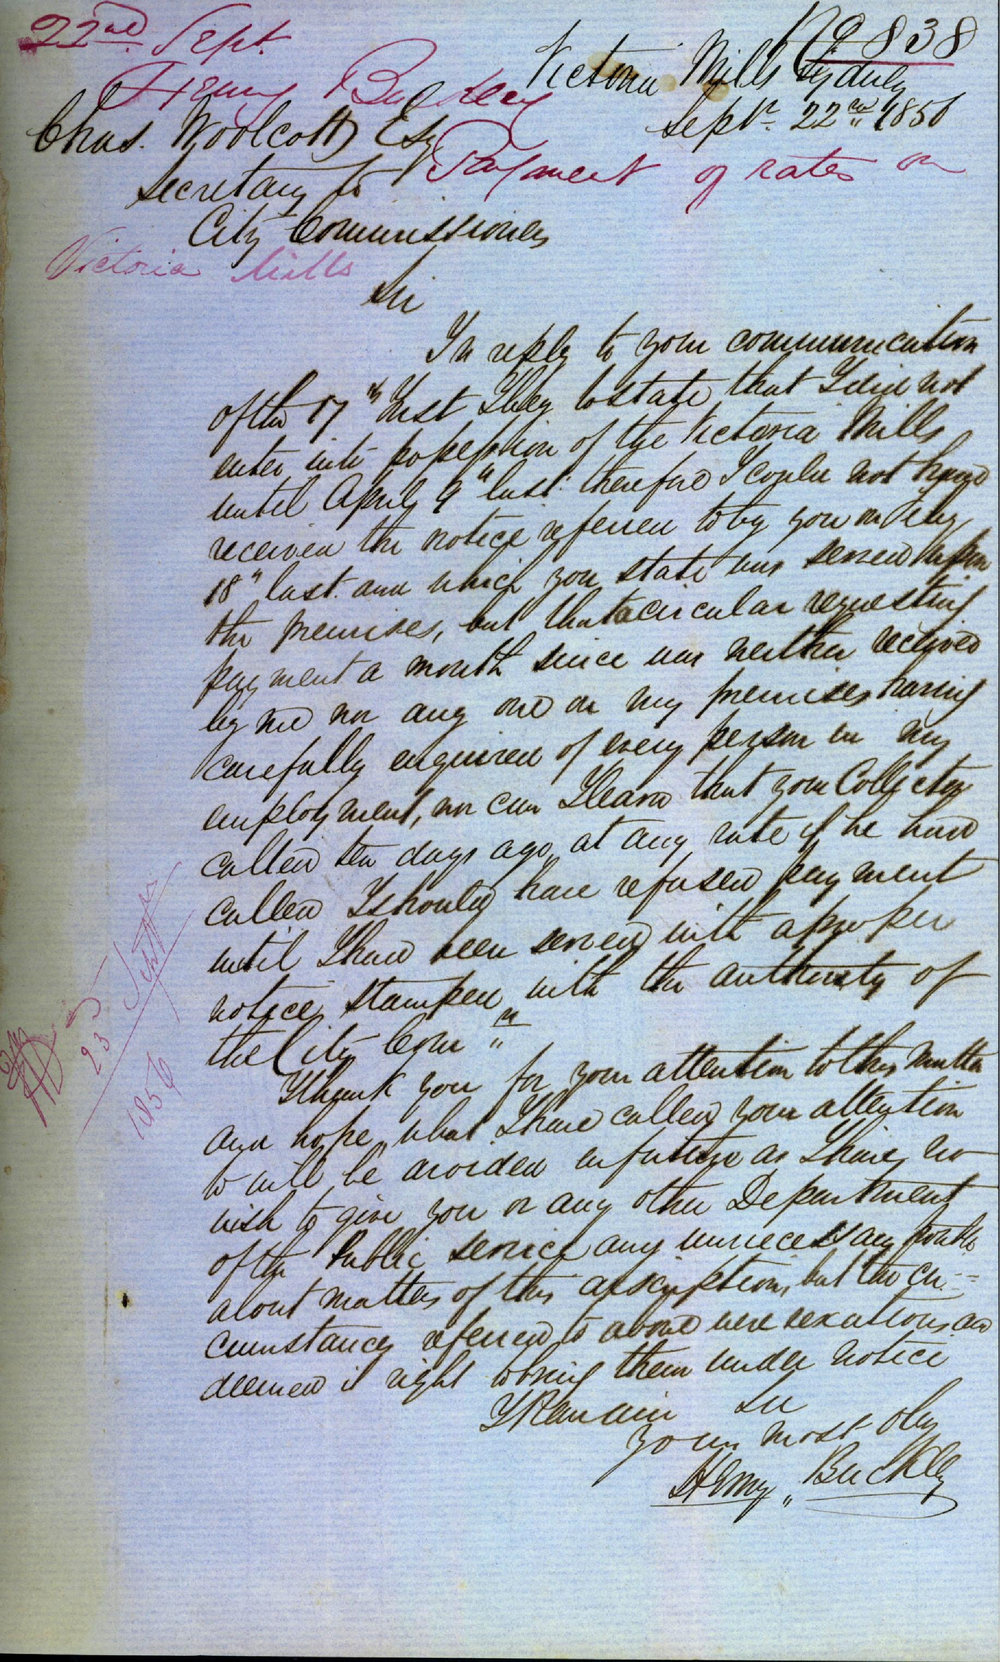 No 838
22nd Sept.
Henry Buckley
Payment of rates on
Victoria Mills
Victoria Mills Sydney
Septr. 22nd 1856
Chas. Woolcott Esq
Secretary to
City Commissioners
Sir
In reply to your communication
of the 17th Inst I beg to state that I did not
enter into possession of the Victoria Mills
until April 9" last therefore I could not have
received the notice referred to by you on
18" last and which you state was served upon
the premises, but that a circular requesting
payment a month since was neither received
by me nor any one on my premises having
carefully enquired of every person in my
employment, nor can I learn that your Collector
called ten days ago, at any rate if he had
called I should have refused payment
until I had been served with a proper
notice stamped with the authority of
the City Comrs
I thank you for your attention to this matter
and hope what I have called your attention
to will be avoided in future as I have no
wish to give you or any other Department
of the Public service any unnecessary trouble
about matters of this description, but the cir=
cumstances referred to above were vexatious and
deemed it right to bring them under notice
I Remain Sir
your most oby
Henry Buckley
23 Septr
1856